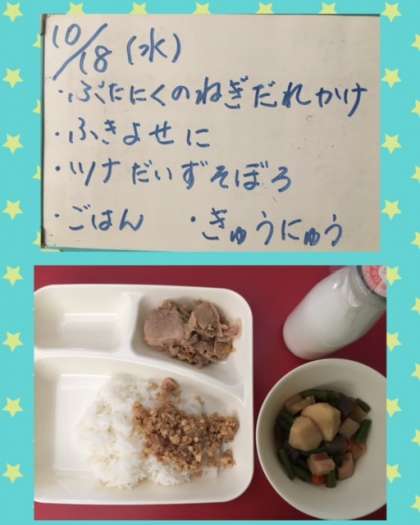 10/18 (水)
・ぶたにくのねぎだれかけ
・ふきよせに
・ツナだいずそぼろ
・ごはん ・ぎゅうにゅう